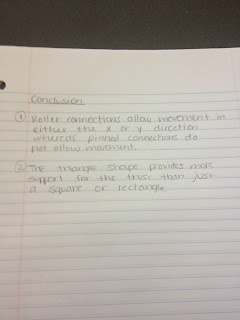 Conclusion
① Roller connections allow movement in
either the x or y direction
whereas pinned connections do
not allow movement.
② The triangle shape provides more
support for the truss than just
a square or rectangle.